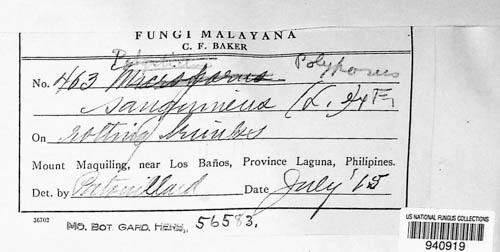 FUNGI MALAYANA
C. F. BAKER
Polyporus
No. 463
sanguineus (L. ex Fr
On rotting trunks
Mount Maquiling, near Los Baños, Province Laguna, Philipines.
Det. by Patouillard Date July '15
36702
MO. BOT. GARD. HERB. 56583.
US NATIONAL FUNGUS COLLECTIONS
940919